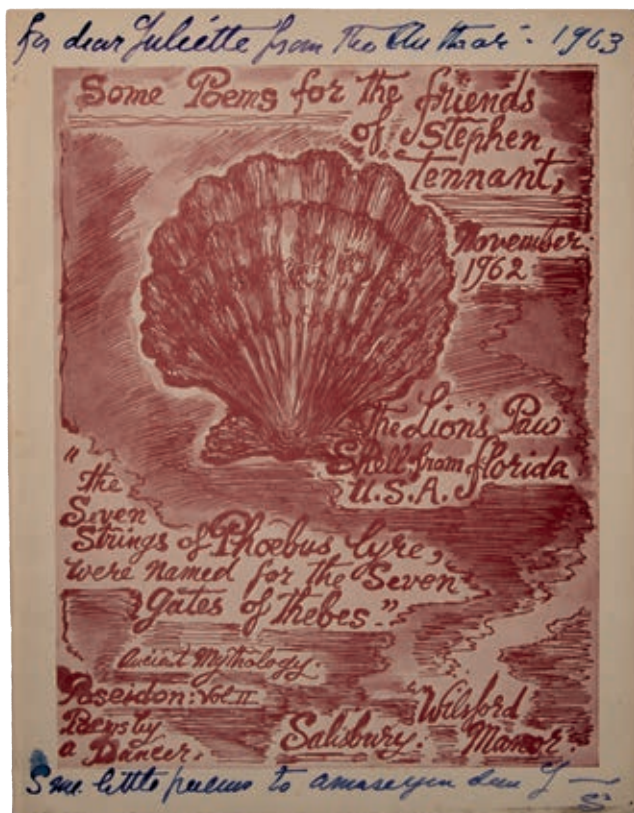 for dear Juliette from The Author - 1963
Some Poems for the friends
of Stephen
Tennant,
November:
1962
The Lion's Paw
Shell from florida
U.S.A.
"the
Seven
Strings of Phœbus lyre,
were named for the Seven
Gates of thebes".
Ancient Mythology.
Poseidon: Vol II
Poems by
a Dancer.
"Wilsford
Salisbury. Manor".
Some little poems to amuse you dear J —
S